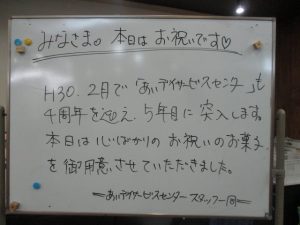 みなさま。本日はお祝いです♡
H30.2月で「あいデイサービスセンター」も
4周年を迎え、5年目に突入します。
本日は心ばかりのお祝いのお菓子
を御用意させていただきました。
＝あいデイサービスセンター スタッフ一同＝